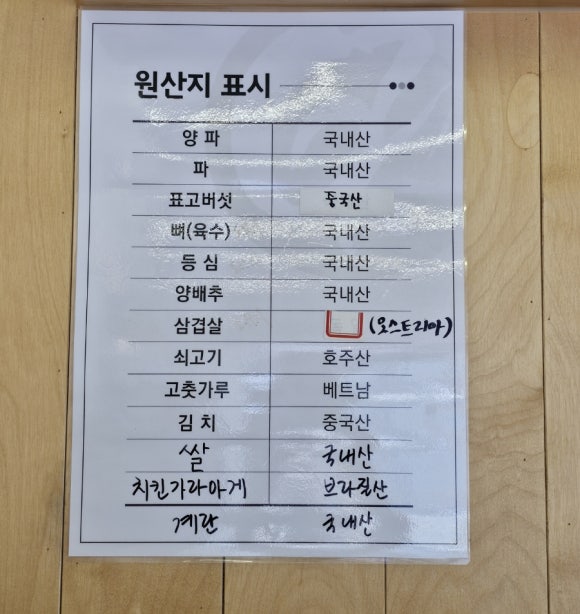 원산지 표시
양 파 국내산
파 국내산
표고버섯 중국산
뼈(육수) 국내산
등 심 국내산
양배추 국내산
삼겹살 (오스트리아)
쇠고기 호주산
고춧가루 베트남
김 치 중국산
쌀 국내산
치킨가라아게 브라질산
계란 국내산